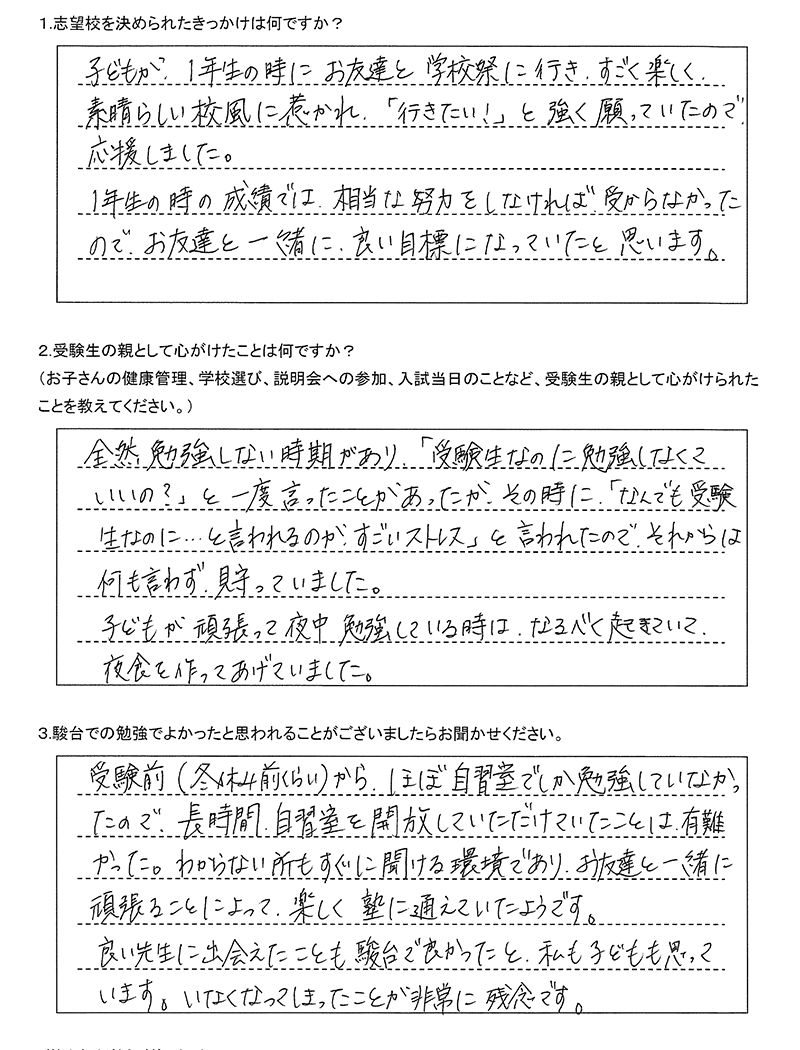 1.志望校を決められたきっかけは何ですか？
子どもが、1年生の時に お友達と 学校祭に行き、すごく楽しく、
素晴らしい校風に惹かれ、「行きたい！」と 強く願っていたので、
応援しました。
1年生の時の成績では、相当な努力をしなければ、受からなかった
ので、お友達と 一緒に、良い目標になっていたと思います。
2.受験生の親として心がけたことは何ですか？
（お子さんの健康管理、学校選び、説明会への参加、入試当日のことなど、受験生の親として心がけられた
ことを教えてください。）
全然、勉強しない時期があり、「受験生なのに勉強しなくて
いいの？」と 一度言ったことがあったが、その時に、「なんでも受験
生なのに…と言われるのが、すごいストレス」と 言われたので、それからは
何も言わず、見守っていました。
子どもが 頑張って夜中 勉強している時は、なるべく起きていて、
夜食を作ってあげていました。
3.駿台での勉強でよかったと思われることがございましたらお聞かせください。
受験前（冬休み前くらい）から、ほぼ自習室でしか勉強していなかっ
たので、長時間、自習室を開放していただけていたことは、有難
かった。わからない所もすぐに聞ける環境であり、お友達と一緒に
頑張ることによって、楽しく 塾に通えていたようです。
良い先生に出会えたことも駿台で良かったと、私も子どもも思って
います。いなくなってしまったことが非常に残念です。